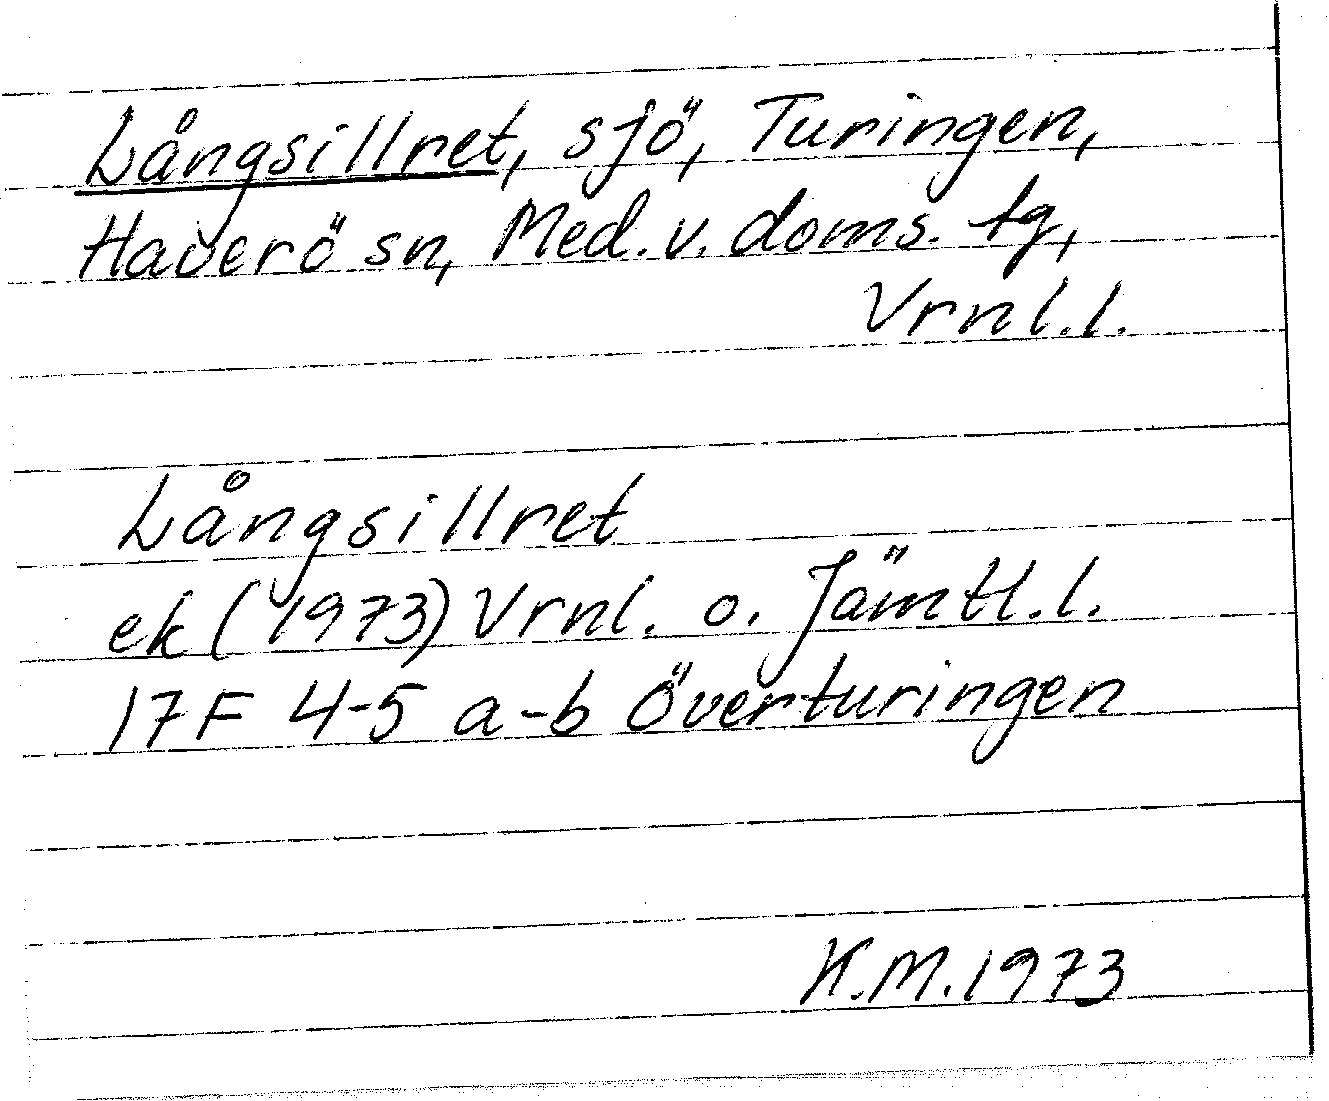 Långsillret, sjö, Turingen,
Haverö sn, Med. v. doms. tg,
Vrnl.l.
Långsillret
ek (1973) Vrnl. o. Jämtl.l.
17F 4-5 a-b Överturingen
K.M.1973